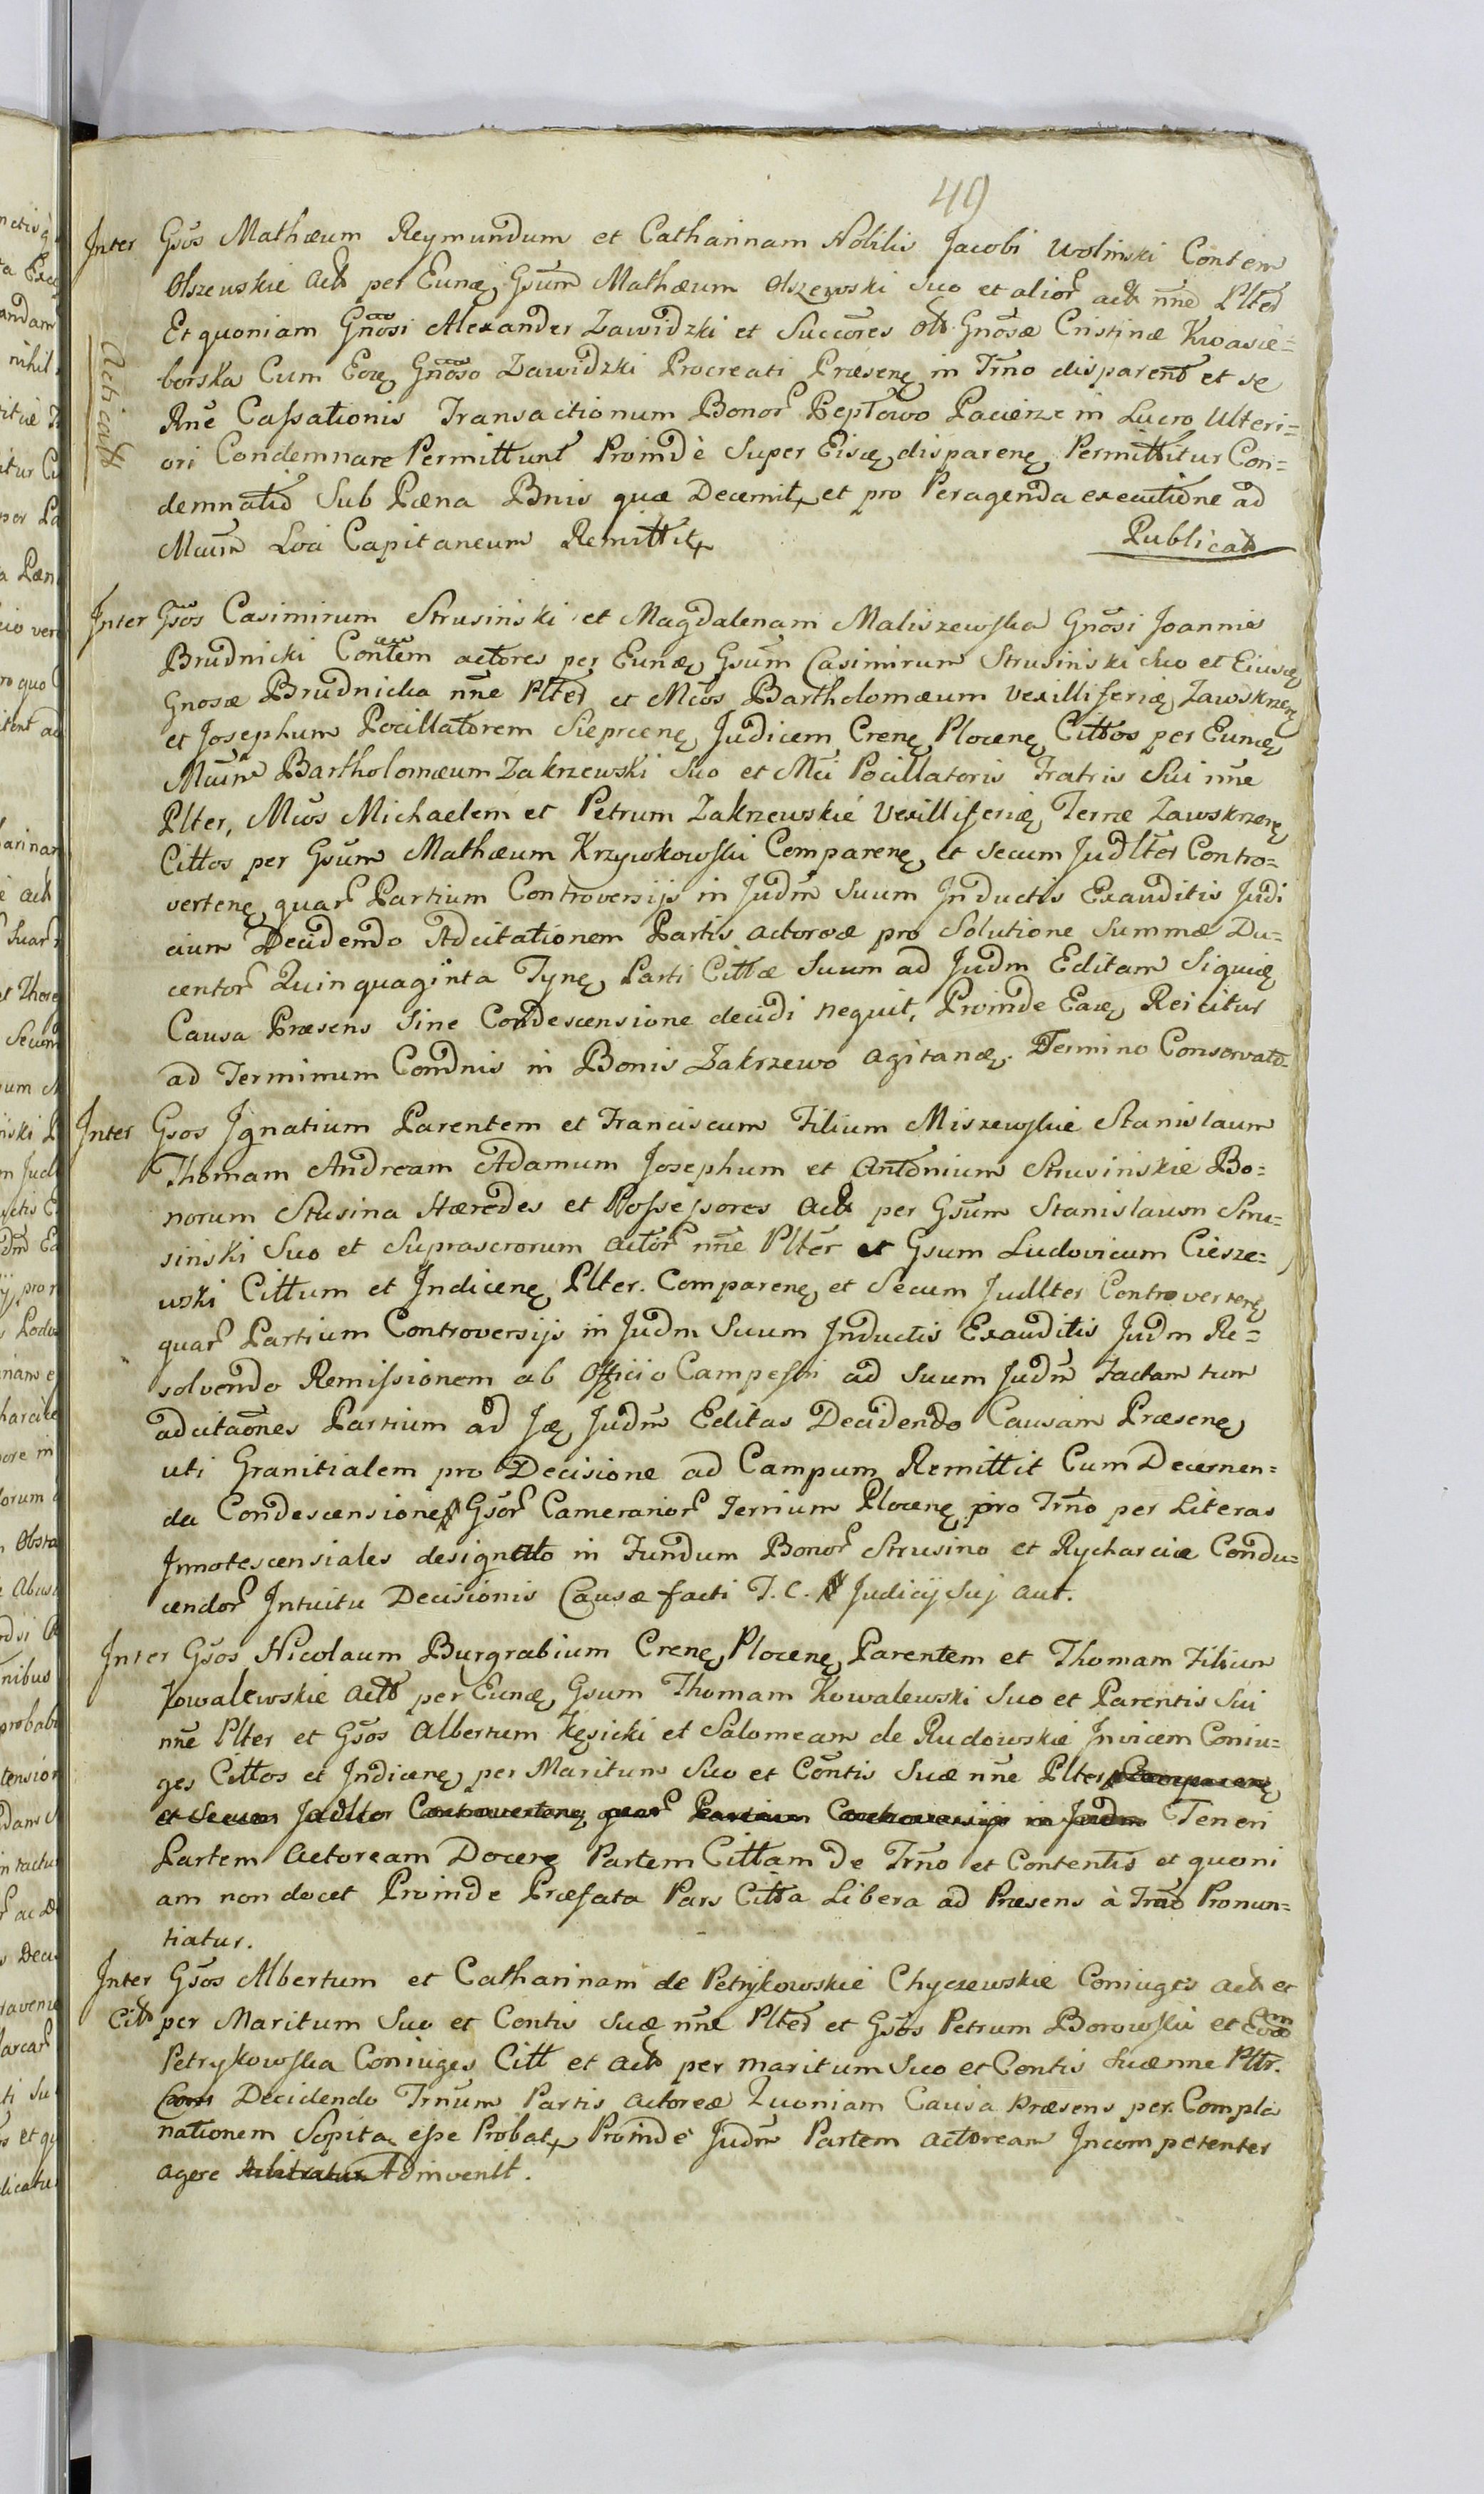 49
Inter Gsos Mathæum Reymundum et Catharinam Nobilis Jacobi Wolinski Contem
Olszewskie act per Eunę Gsum Mathæum Olszewski Suo et alior act nne Plter
Et quoniam Gnosi Alexander Zawidzki et Succores olt Gnosæ Cristinæ Kwasie=
borska Cum Eoę Gnoso Zawidzki Procreati Præsenę in Trno disparent et se
Rne Cassationis Transactionum Bonor Peptowo Pacierze in Lucro Ulteri=
ori Condemnare Permittunt Proindè Super Eisę disparenę Permittitur Con=
demnatio Sub Pæna Bnis quæ Decernit et pro Peragenda executione ad
Mcum Loci Capitaneum Remittit
Publicat
Acticatt
Inter Gsos Casimirum Strusinski et Magdalenam Maliszewska Gnosi Joannis
Brudnicki Contem actores per Eunę Gsum Casimirum Strusinski Suo et Eiusę
Gnosæ Brudnicka nne Plter et Mcos Bartholomæum Vexilliferię Zawskrzenę
et Josephum Pocillatorem Sieprcenę Judicem Crenę Plocenę Cittos per Eunę
Mcum Bartholomæum Zakrzewski Suo et Mci Pocillatoris Fratris Sui nne
Plter, Mcos Michaelem et Petrum Zakrzewskie Vexilliferię Terræ Zawskrzenę
Cittos per Gsum Mathæum Krzywkowski Comparenę et Secum Judlter Contro=
vertenę quar Partium Controversijs in Judm Suum Inductis Exauditis Judi
cium Decidendo Adcitationem Partis actoreæ pro Solutione Summæ Du=
centor Quinquaginta Tynę Parti Cittæ Suum ad Judm Editam Siquię
Causa Præsens Sine Condescensione decidi nequit, Proinde Eaę Reicitur
ad Terminum Condnis in Bonis Zakrzewo agitanę. Termino Conservato
Inter Gsos Ignatium Parentem et Franciscum Filium Miszewskie Stanislaum
Thomam Andream Adamum Josephum et Antonium Strusinskie Bo=
norum Stusina Hæredes et Possessores act per Gsum Stanislaum Stru=
sinski Suo et Suprascrorum actor nne Plter et Gsum Ludovicum Ciesze=
wski Cittum et Indicenę Plter. Comparenę et Secum Judlter Controvertenę
quar Partium Controversijs in Judm Suum Inductis Exauditis Judm Re=
solvendo Remissionem ab Officio Campestri ad Suum Judm Factam tum
adcitaones Partium ad Ię Judm Editas Decidendo Causam Præsenę
uti Granitialem pro Decisione ad Campum Remittit Cum Decernen=
da Condescensione Gsor Camerarior Terrium Plocenę pro Trno per Literas
Innotescensiales designato in Fundum Bonor Strusino et Rycharcice Condu=
cendor Intuitu Decisionis Causæ facti T. C. Judicij Suj aut.
Inter Gsos Nicolaum Burgrabium Crenę Plocenę Parentem et Thomam Filium
Kowalewskie actt per Eunę Gsum Thomam Kowalewski Suo et Parentis Sui
nne Plter et Gsos Albertum Kęsicki et Salomeam de Rudowskie Invicem Coniu=
ges Cittos et Indicenę per Maritum Suo et Contis Suæ nne Plter Comparenę
et Secum Judlter Controvertenę quar Partium Controversijs in Judm Teneri
Partem Actoream Docere Partem Cittam de Trno et Contentis et quoni
am non docet Proinde Præfata Pars Citta Libera ad Præsens à Trno Pronun=
tiatur.
Inter Gsos Albertum et Catharinam de Petrykowskie Chyczewskie Coniuges act et
Citt per Maritum Suo et Contis Suæ nne Plter et Gsos Petrum Borowski et Evam
Petrykowska Coniuges Citt et act per maritum Suo et Contis Suæ nne Pltr.
Decidendo Trnum Partis actoreæ Quoniam Causa Præsens per Compla
nationem Sopita esse Probat Proinde Judm Partem actoream Incompetenter
agere Arbitratur Adinvenit.